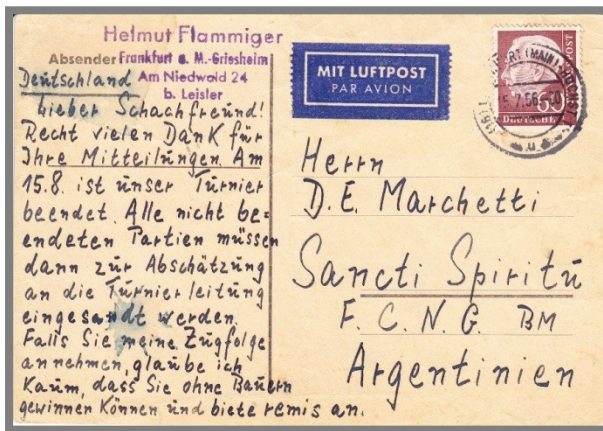 Helmut Flammiger
Absender Frankfurt a. M.-Griesheim
Am Niedwald 24
b. Leisler
Deutschland
Lieber Schachfreund!
Recht vielen Dank für
Ihre Mitteilungen. Am
15.8. ist unser Turnier
beendet. Alle nicht be=
endeten Partien müssen
dann zur Abschätzung
an die Turnierleitung
eingesandt werden.
Falls Sie meine Zugfolge
annehmen, glaube ich
kaum, dass Sie ohne Bauern
gewinnen können und biete remis an.
MIT LUFTPOST
PAR AVION
60
Herrn
D. E. Marchetti
Sancti Spiritu
F. C. N. G. BM
Argentinien